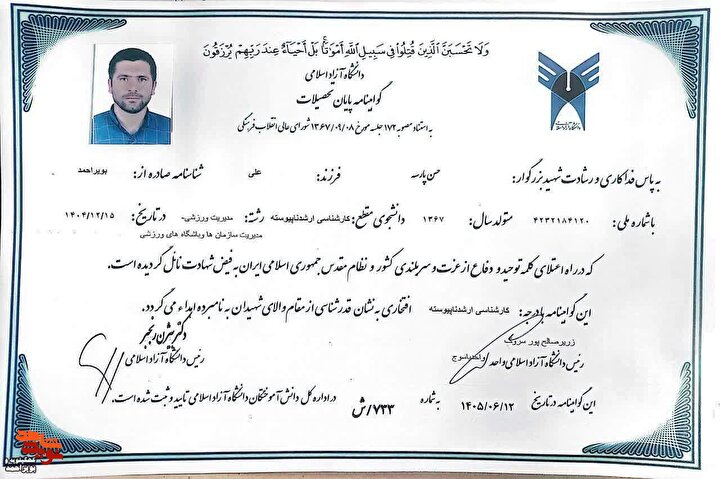 وَلَا تَحْسَبَنَّ الَّذِينَ قُتِلُوا فِي سَبِيلِ اللَّهِ أَمْوَاتًا بَلْ أَحْيَاءٌ عِنْدَ رَبِّهِمْ يُرْزَقُونَ
دانشگاه آزاد اسلامی
گواهینامه پایان تحصیلات
به استناد مصوبه ۱۷۲ جلسه مورخ ۱۳۶۷/۰۹/۰۸ شورای عالی انقلاب فرهنگی
به پاس فداکاری و رشادت شهید بزرگوار: حسن پارسه فرزند: علی شناسنامه صادره از: بویراحمد
با شماره ملی: ۴۲۳۲۱۸۴۱۲۰ متولد سال: ۱۳۶۷ دانشجوی مقطع: کارشناسی ارشدناپیوسته رشته: مدیریت ورزشی- در تاریخ: ۱۴۰۴/۱۲/۱۵
مدیریت سازمان ها وباشگاه های ورزشی
که در راه اعتلای کلمه توحید و دفاع از عزت و سربلندی کشور و نظام مقدس جمهوری اسلامی ایران به فیض شهادت نائل گردیده است.
این گواهینامه با درجه: کارشناسی ارشدناپیوسته افتخاری به نشان قدرشناسی از مقام والای شهیدان به نامبرده اهداء می گردد.
زریرصالح پور سروک
رئیس دانشگاه آزاد اسلامی واحد واحدیاسوج
دکتر بیژن رنجبر
رئیس دانشگاه آزاد اسلامی
این گواهینامه در تاریخ ۱۴۰۵/۰۶/۱۲ به شماره ۷۳۳/ش در اداره کل دانش آموختگان دانشگاه آزاد اسلامی تایید و ثبت شده است.